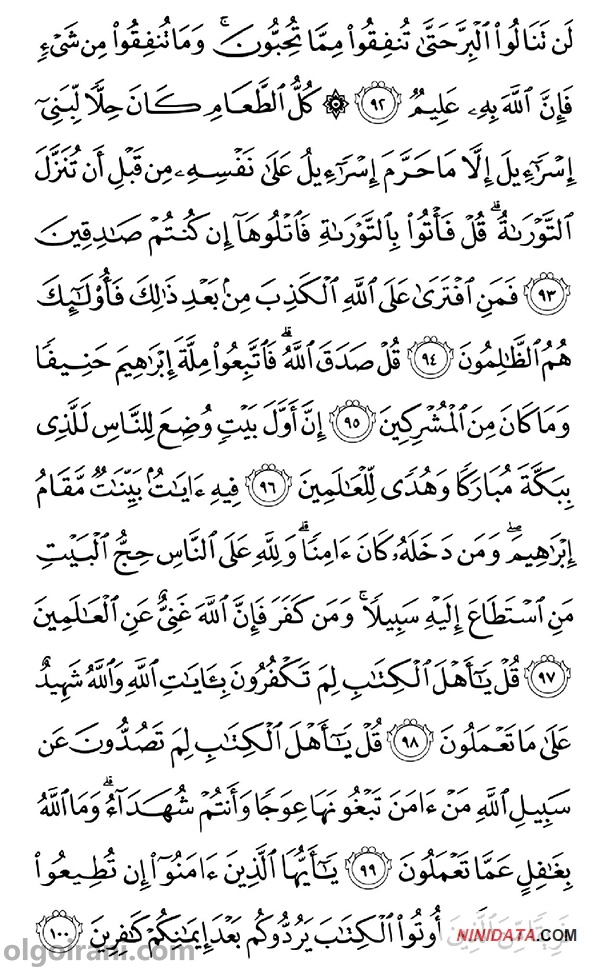 لَن تَنَالُوا۟ ٱلْبِرَّ حَتَّىٰ تُنفِقُوا۟ مِمَّا تُحِبُّونَ ۚ وَمَا تُنفِقُوا۟ مِن شَىْءٍ
فَإِنَّ ٱللَّهَ بِهِۦ عَلِيمٌ ٩٢ ۞ كُلُّ ٱلطَّعَامِ كَانَ حِلًّا لِّبَنِىٓ
إِسْرَٰٓءِيلَ إِلَّا مَا حَرَّمَ إِسْرَٰٓءِيلُ عَلَىٰ نَفْسِهِۦ مِن قَبْلِ أَن تُنَزَّلَ
ٱلتَّوْرَىٰةُ ۗ قُلْ فَأْتُوا۟ بِٱلتَّوْرَىٰةِ فَٱتْلُوهَآ إِن كُنتُمْ صَٰدِقِينَ
٩٣ فَمَنِ ٱفْتَرَىٰ عَلَى ٱللَّهِ ٱلْكَذِبَ مِنۢ بَعْدِ ذَٰلِكَ فَأُو۟لَٰٓئِكَ
هُمُ ٱلظَّٰلِمُونَ ٩٤ قُلْ صَدَقَ ٱللَّهُ ۗ فَٱتَّبِعُوا۟ مِلَّةَ إِبْرَٰهِيمَ حَنِيفًا
وَمَا كَانَ مِنَ ٱلْمُشْرِكِينَ ٩٥ إِنَّ أَوَّلَ بَيْتٍ وُضِعَ لِلنَّاسِ لَلَّذِى
بِبَكَّةَ مُبَارَكًا وَهُدًى لِّلْعَٰلَمِينَ ٩٦ فِيهِ ءَايَٰتٌۢ بَيِّنَٰتٌ مَّقَامُ
إِبْرَٰهِيمَ ۖ وَمَن دَخَلَهُۥ كَانَ ءَامِنًا ۗ وَلِلَّهِ عَلَى ٱلنَّاسِ حِجُّ ٱلْبَيْتِ
مَنِ ٱسْتَطَاعَ إِلَيْهِ سَبِيلًا ۚ وَمَن كَفَرَ فَإِنَّ ٱللَّهَ غَنِىٌّ عَنِ ٱلْعَٰلَمِينَ
٩٧ قُلْ يَٰٓأَهْلَ ٱلْكِتَٰبِ لِمَ تَكْفُرُونَ بِـَٔايَٰتِ ٱللَّهِ وَٱللَّهُ شَهِيدٌ
عَلَىٰ مَا تَعْمَلُونَ ٩٨ قُلْ يَٰٓأَهْلَ ٱلْكِتَٰبِ لِمَ تَصُدُّونَ عَن
سَبِيلِ ٱللَّهِ مَنْ ءَامَنَ تَبْغُونَهَا عِوَجًا وَأَنتُمْ شُهَدَآءُ ۗ وَمَا ٱللَّهُ
بِغَٰفِلٍ عَمَّا تَعْمَلُونَ ٩٩ يَٰٓأَيُّهَا ٱلَّذِينَ ءَامَنُوٓا۟ إِن تُطِيعُوا۟
فَرِيقًا مِّنَ ٱلَّذِينَ أُوتُوا۟ ٱلْكِتَٰبَ يَرُدُّوكُم بَعْدَ إِيمَٰنِكُمْ كَٰفِرِينَ ١٠٠
NINIDATA.COM
olgoirani.com